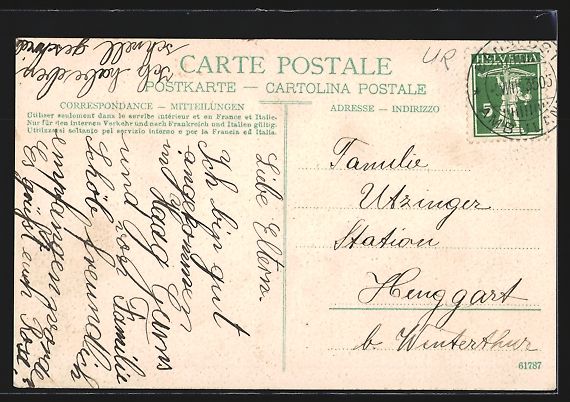 CARTE POSTALE
POSTKARTE — CARTOLINA POSTALE
CORRESPONDANCE - MITTEILUNGEN
ADRESSE - INDIRIZZO
Utilizer seulement dans le servibe intérieur et en France et Italie.
Nur für den internen Verkehr und nach Frankreich und Italien gültig.
Utilizzarsi soltanto pel servizio interno e per la Francia ed Italia.
HELVETIA
5
UR
Familie
Utzinger
Station
Henggart
b. Winterthur
61787
Liebe Eltern.
Ich bin gut
angekommen
in Haag Gams
und von Familie
Schöb freundlich
empfangen word
Es grüsst euch
Ich habe eben
schnell